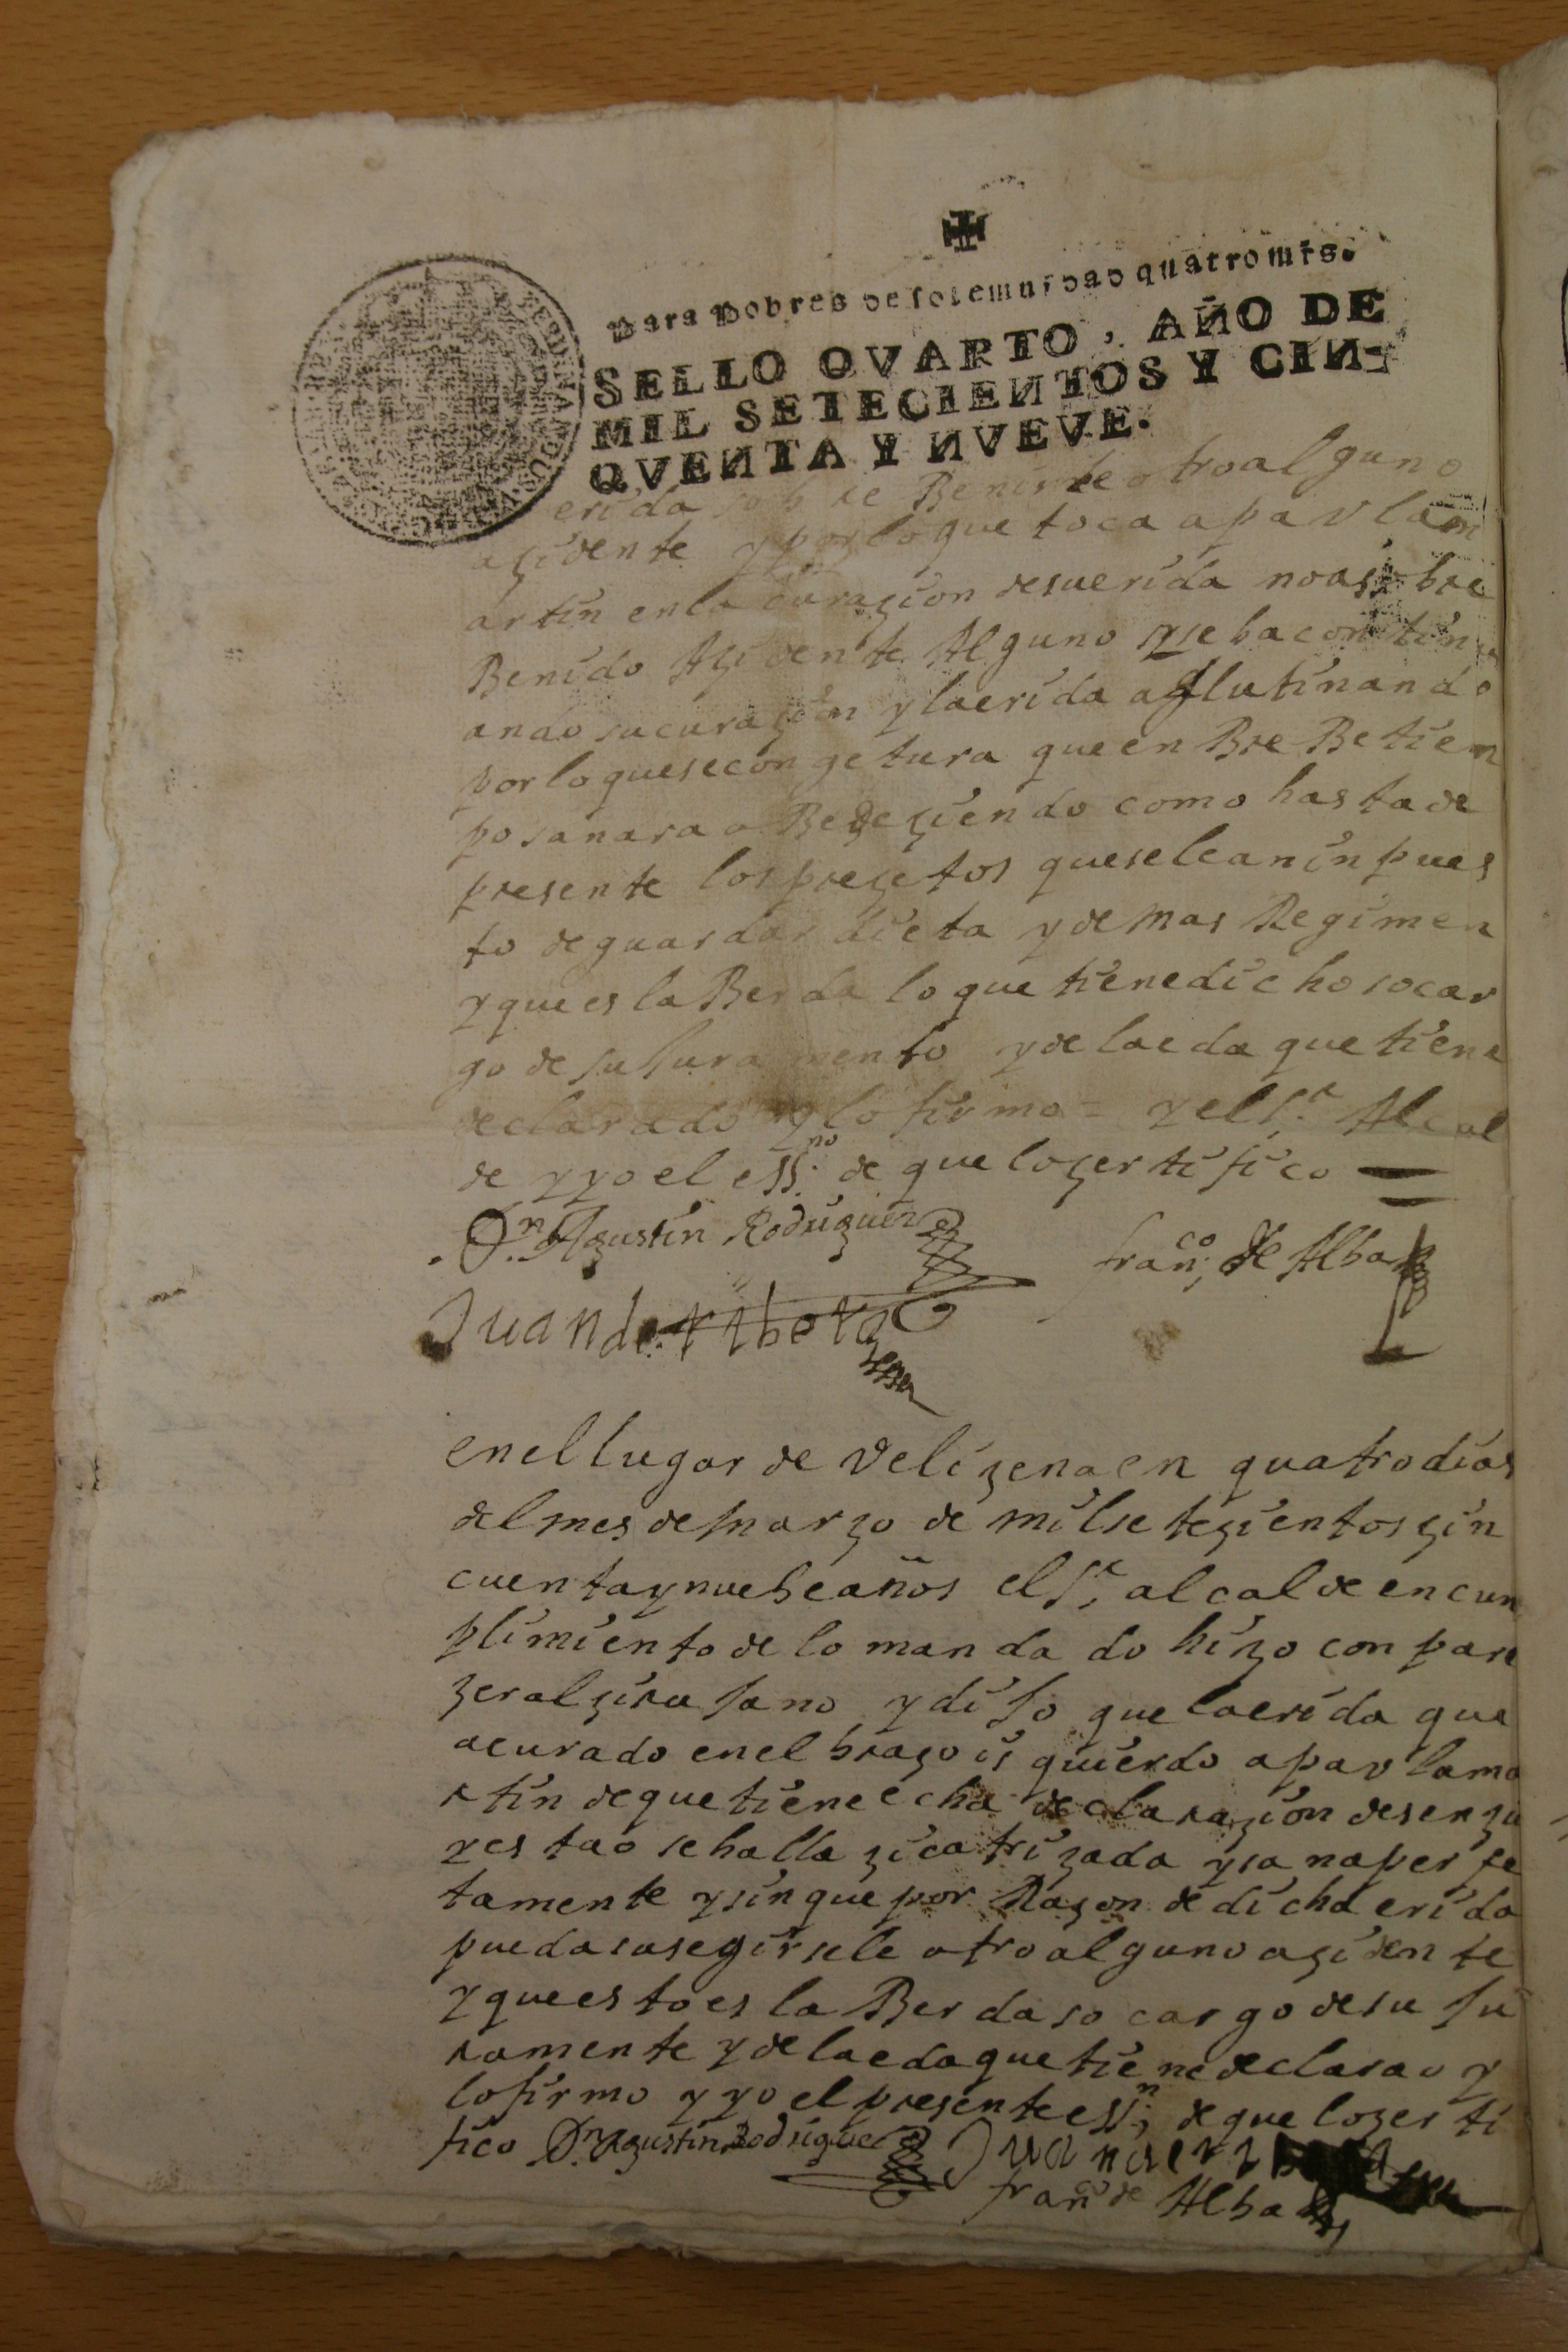 Para Pobres de solemnidad quatro mrs.
SELLO QVARTO, AÑO DE
MIL SETECIENTOS Y CIN-
QVENTA Y NVEVE.
erida sobre Benirle otro alguno
açidente y por lo que toca a pavla m
artin en la curaçion de su erida no a sobre
Benido Açidente Alguno y se ba continu
ando su curaçion y la erida aglutinando
por lo que se congetura que en BreBe tiem
po sanara oBedeçiendo como hasta de
presente los preçetos que se le an inpues
to de guardar dieta y demas Regimen
y que es la Berda lo que tiene dicho so car
go de su Juramento y de la eda que tiene
declarado y lo firmo = y el Sr. Alcal
de y yo el essno. de que lo çertifico =
Dn. Agustin Rodriguez
franco. de Alba
Juan de
en el lugar de Veliçena en quatro dias
del mes de março de mil seteçientos çin
cuenta y nuebe años el Sr. alcalde en cun
plimiento de lo mandado hiço conpare
çer al çirujano y dijo que la erida que
a curado en el braço isquierdo a pavla ma
rtin de que tiene echa declaraçion desençu
yestao se halla çicatriçada y sana perfe
tamente y sin que por Raçon de dicha erida
pueda susegirsele otro alguno açidente
y que esto es la Berda so cargo de su Ju
ramente y de la eda que tiene declarao y
lo firmo y yo el presente essn. de que lo çerti
fico Dn. Agustin Rodriguez
Juan
franco de Alba